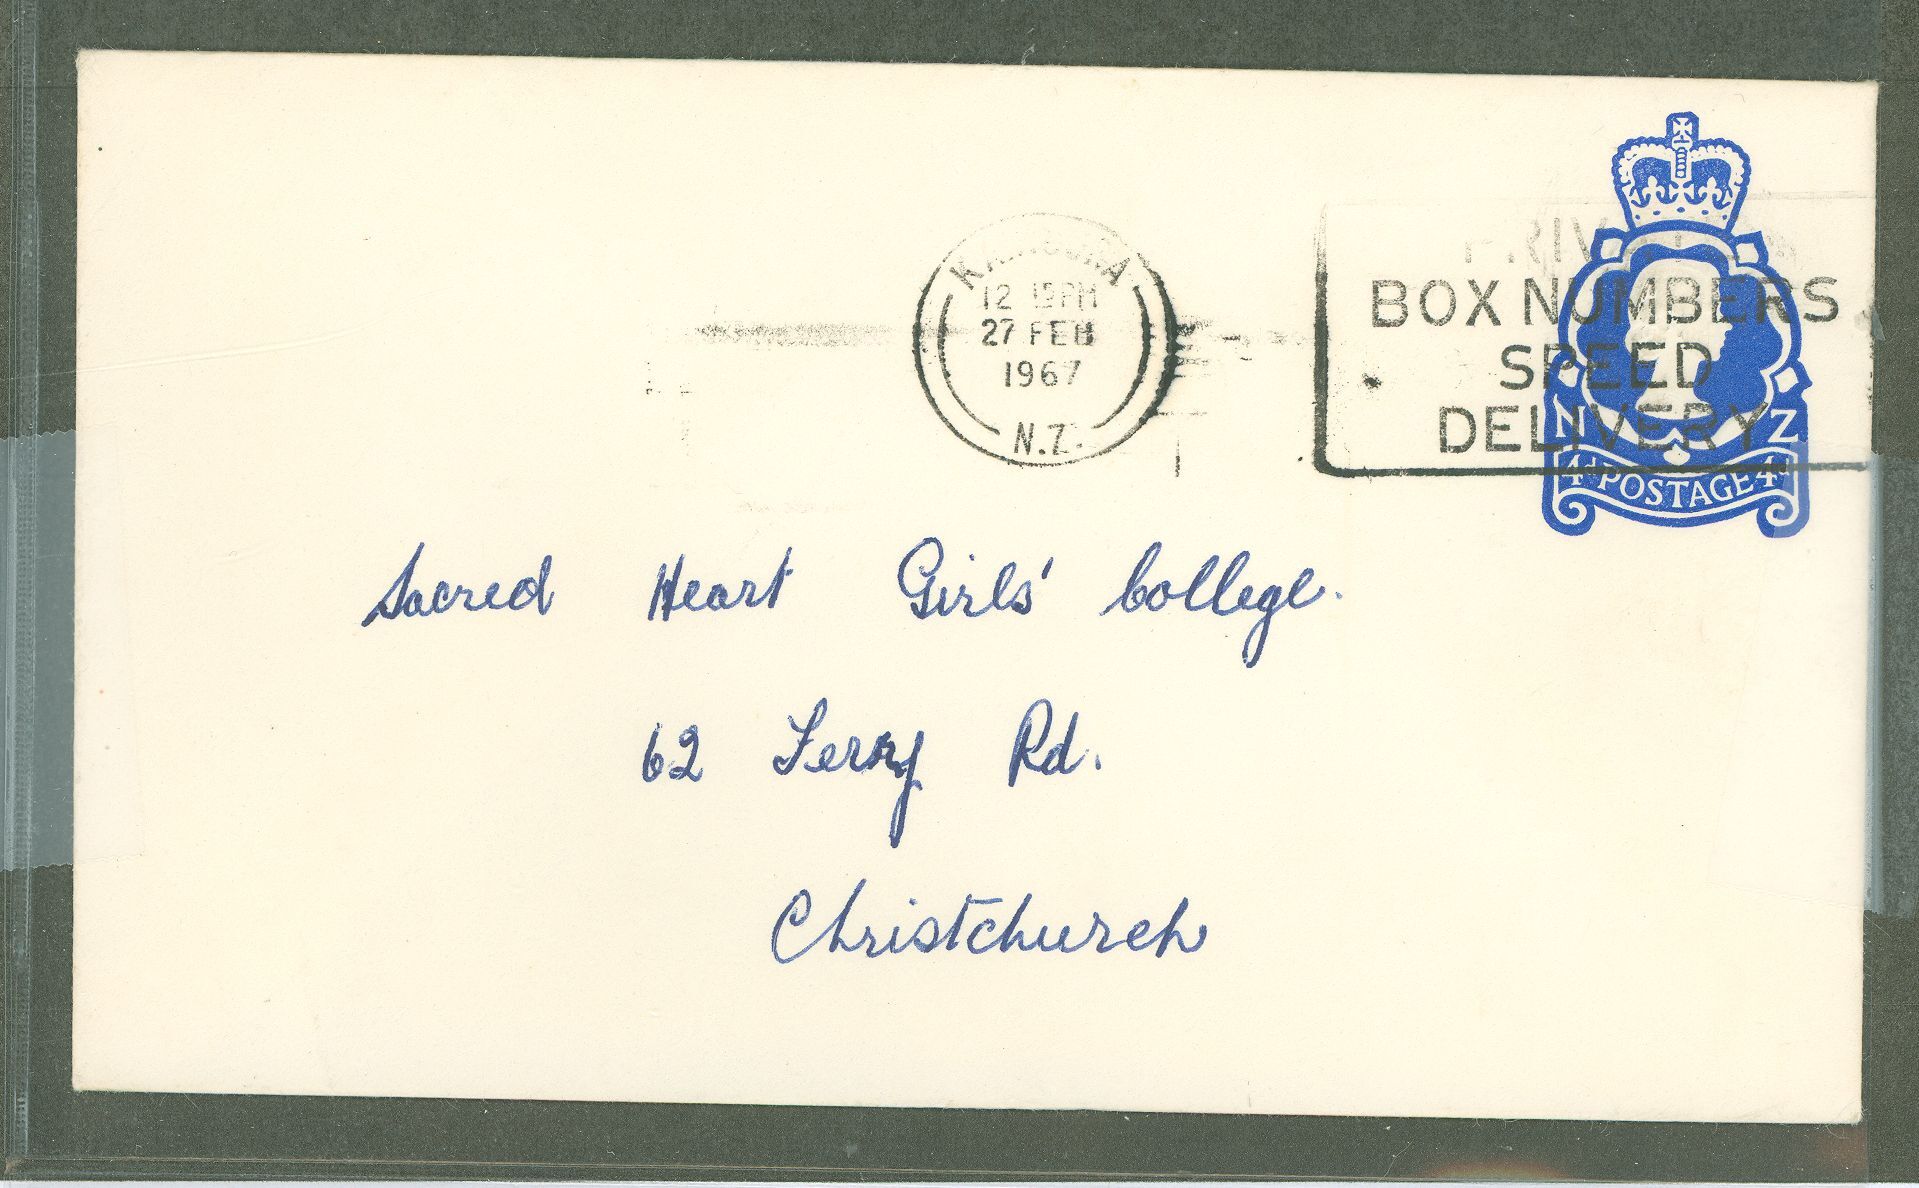 KAIKOURA
12 15PM
27 FEB
1967
N.Z.
PRIVATE
BOX NUMBERS
SPEED
DELIVERY
N Z
4d POSTAGE 4d
Sacred Heart Girls' College.
62 Ferry Rd.
Christchurch